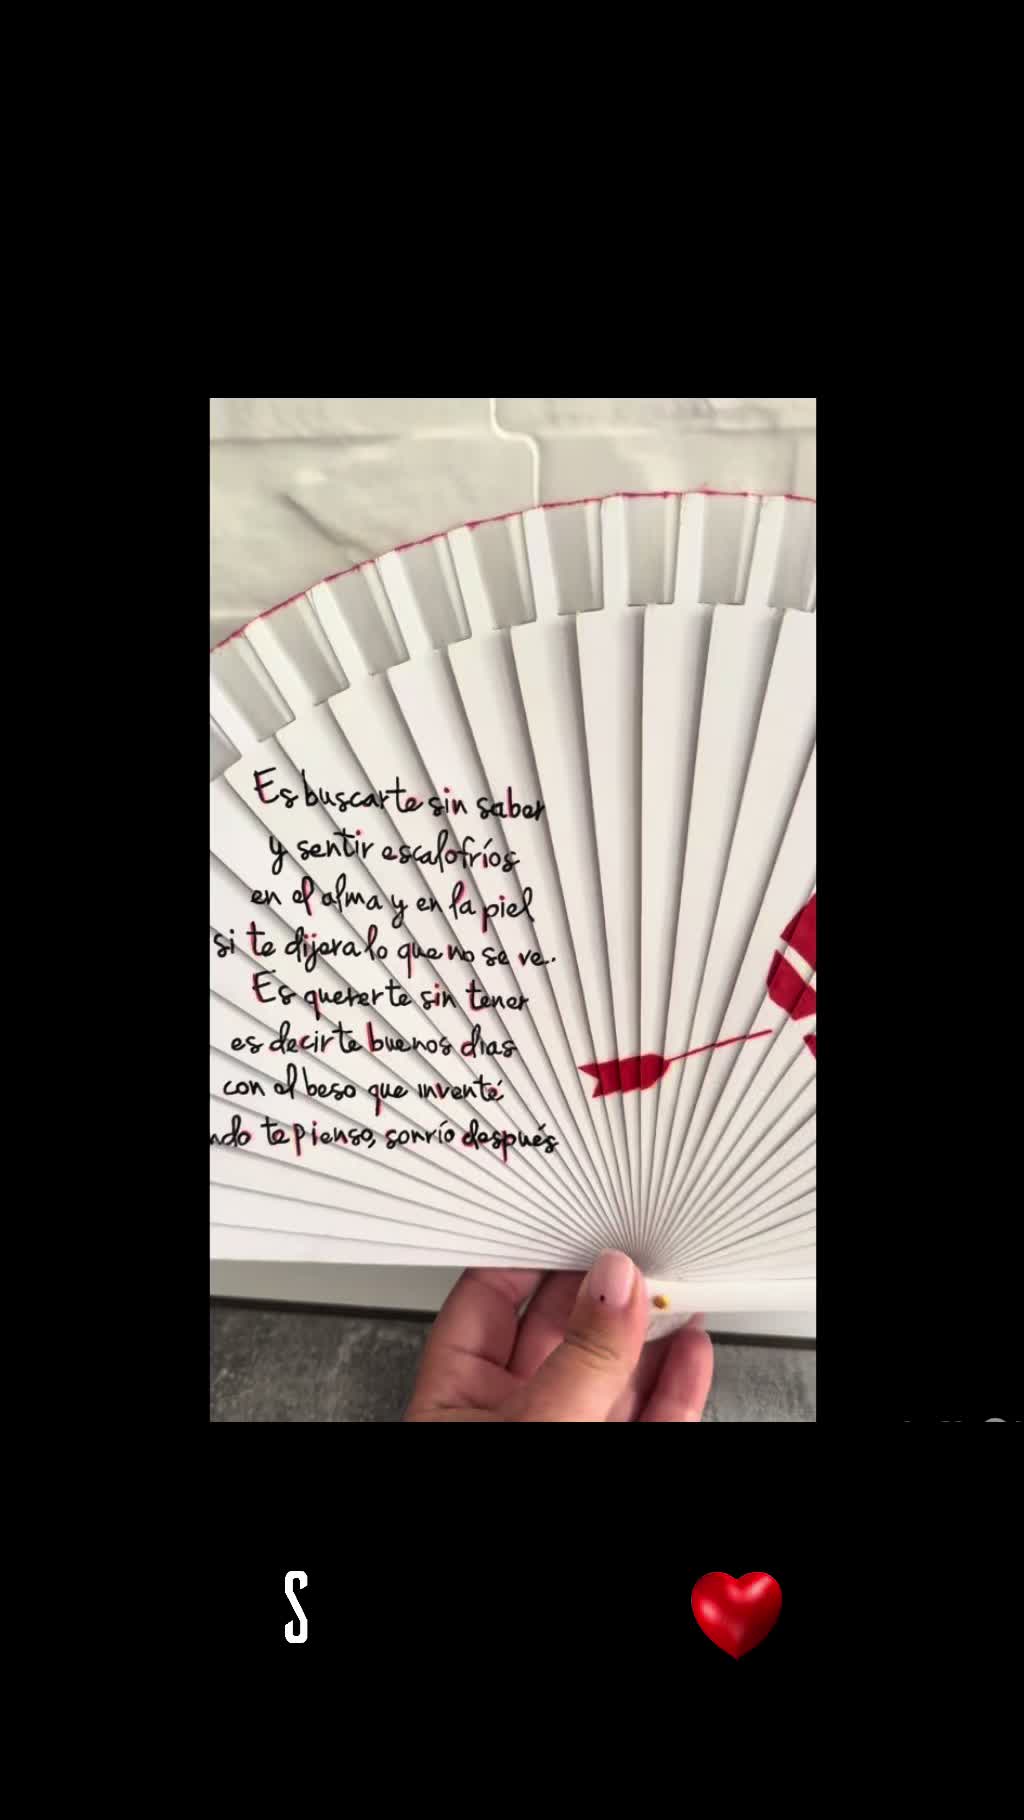 Es buscarte sin saber
y sentir escalofríos
en el alma y en la piel
si te dijera lo que no se ve.
Es quererte sin tener
es decirte buenos días
con el beso que inventé
ndo te pienso, sonrío después
S